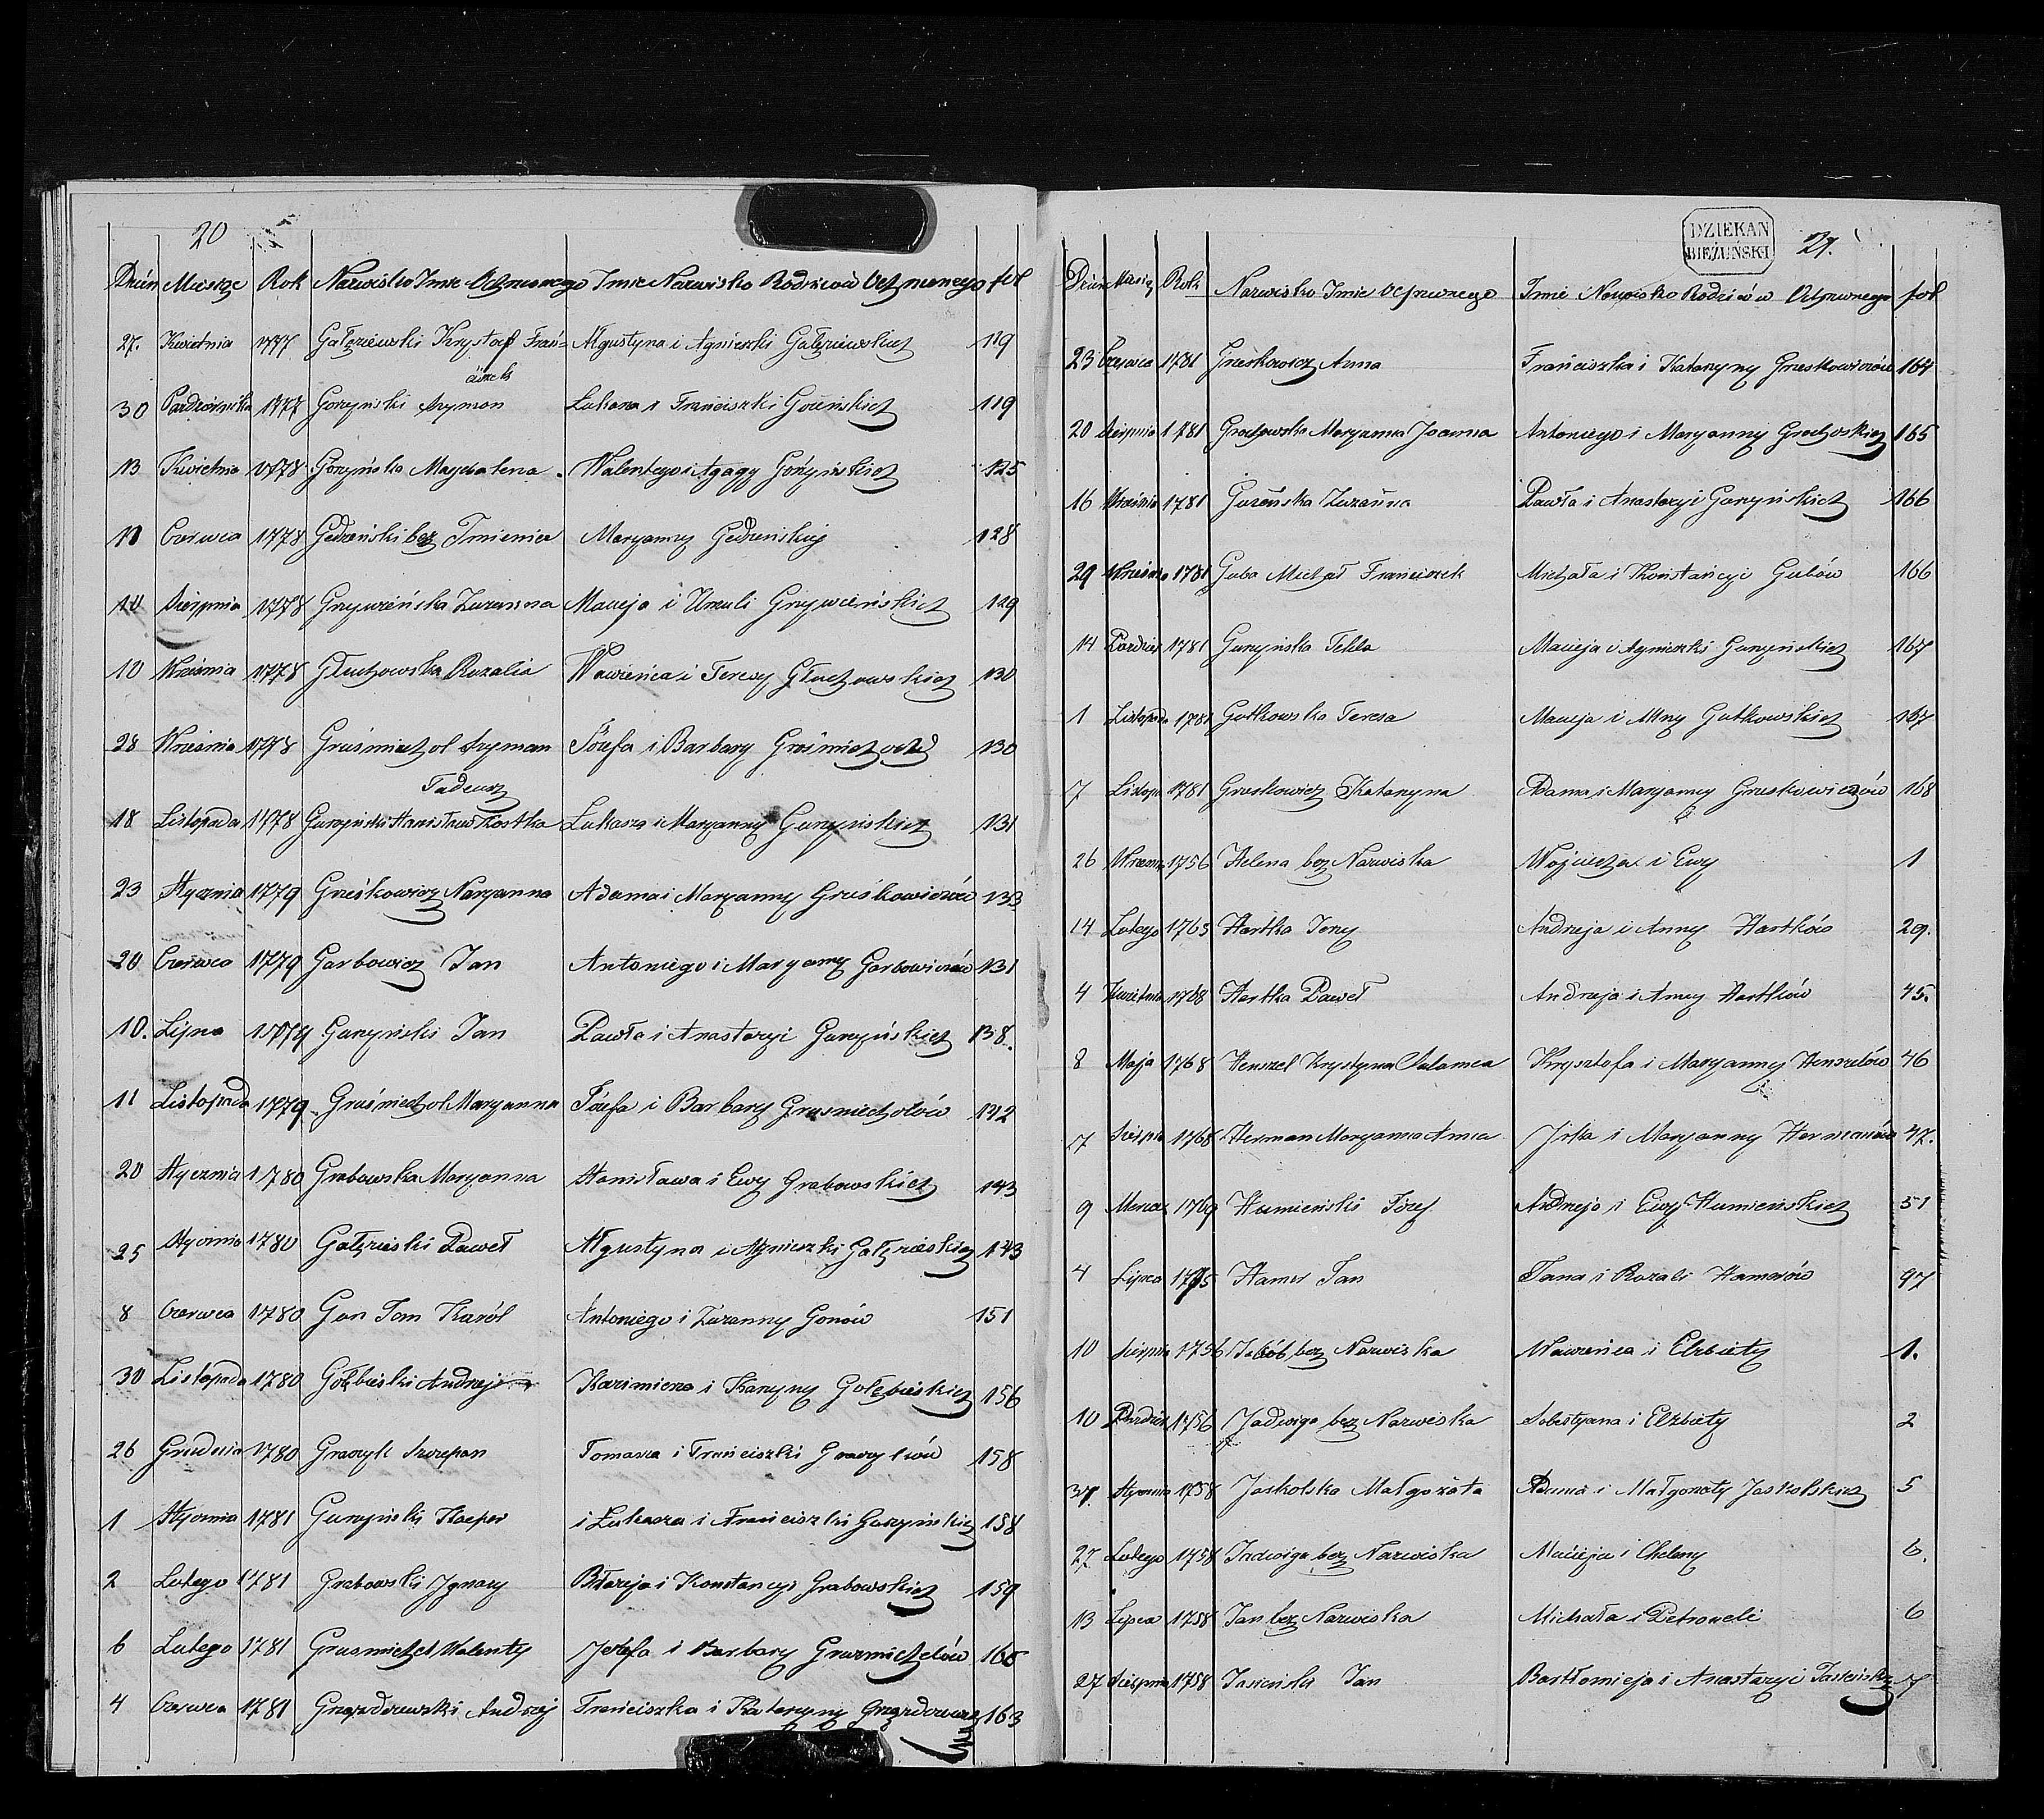 20
Dzień Miesięc Rok Nazwisko Imie Ochrzconego Imie Nazwisko Rodziców Ochrzconego fol
27. Kwietnia 1777 Gałęziewski Krysztof Fran- Agustyna i Agnieszki Gałęziewskich 119
ciszek
30 Pazdziernika 1777 Gorzyński Szymon Łukasza i Franciszki Gorzeńskich 119
13 Kwietnia 1778 Gorzyńska Magdalena Walentego i Agagy Gorzyńskich 125
11 Czerwca 1778 Gedzeński bez Imienica Maryanny Gedzenskiej 128
10 Sierpnia 1778 Grzywzeńska Zuzanna Macieja i Urszuli Grzywieńskich 129
10 Września 1778 Głuchowska Rozalia Wawrzeńca i Teresy Głuchowskich 130
28 Września 1778 Gruśmiechol Szyman Józefa i Barbary Gruśmiechołd 130
Tadeusz
18 Listopada 1778 Gurzyński Stanisław Kostka Łukasza i Maryanny Gurzyńskich 131
23 Stycznia 1779 Greśkowicz Maryanna Adama i Maryanny Greśkowiczów 133
20 Czerwca 1779 Garbowicz Jan Antoniego i Maryanny Garbowiczów 131
10. Lipca 1779 Gurzyński Jan Pawła i Anastazyi Gurzyńskich 138.
11 Listopada 1779 Gruśmiechol Maryanna Józefa i Barbary Grusmiecholów 142
20 Stycznia 1780 Grabowska Maryanna Stanisława i Ewy Grabowskich 143
25 Stycznia 1780 Gałęzieski Paweł Agustyna i Agnieszki Gałęzieskich 143
8 Czerwca 1780 Gon Jan Karól Antoniego i Zuzanny Gonów 151
30 Listopada 1780 Gołębieski Andrzej Kazimierza i Katarzyny Gołębieskich 156
26 Grudnia 1780 Graczyk Szczepan Tomasza i Franciszki Graczyków 158
1 Stycznia 1781 Gurzyński Kacper i Łukasza i Franciszki Gurzyńskich 158
2 Lutego 1781 Grabowski Jgnacy Błazeja i Konstancyi Grabowskich 159
6 Lutego 1781 Grusmichel Walenty Jozefa i Barbary Gruzmichelów 160
4 Czerwca 1781 Gruzdzewski Andrzej Franciszka i Katarzyny 163
DZIEKAN
BIEŻUŃSKI
21.
Dzień Miesięc Rok Nazwisko Imie Ochrzconego Imie Nazwisko Rodziców Ochrzconego fol
23 Czerwca 1781 Greskowicz Anna Franciszka i Katarzyny Greskowiczów 164
20 Sierpnia 1781 Grochowska Maryanna Joanna Antoniego i Maryanny Grochoskich 165
16 Wrześnie 1781 Gurzeńska Zuzanna Pawła i Anastazyi Gurzyńskich 166
29 Wrześnie 1781 Guba Michał Franciszek Michała i Konstancyi Gubów 166
14 Pazdzier 1781 Gurzyńska Tekla Macieja i Agnieszki Gurzyńskich 167
1 Listopada 1781 Gutkowska Teresa Macieja i Anny Gutkowskich 167
7 Listopa 1781 Greskowicz Katarzyna Adama i Maryanny Greskowiczów 168
26 Wrzesni 1756 Helena bez Nazwiska Wojciecha i Ewy 1
14 Lutego 1763 Hartka Jerzy Andrzeja i Anny Hartków 29.
4 Kwietnia 1768 Hartka Paweł Andrzeja i Anny Hartków 45.
8 Maja 1768 Henszel Krystyna Salomea Krysztofa i Maryanny Henszelów 46
7 Sierpnia 1768 Herman Maryanna Anna Maryanny Hermanów 47.
9 Marca 1769 Humieński Józef Andrzeja i Ewy Humieńskich 51
4 Lipca 1775 Hamer Jan Jana i Rozali Hamerów 97
10 Sierpnia 1756 Jakób bez Nazwiska Wawrzeńca i Elzbiety 1.
10 Pazdzier 1756 Jadwiga bez Nazwiska Sebestyana i Elżbiety 2
31 Stycznia 1758 Jaskolska Małgorzata Adama i Małgorzaty Jaskolskich 5
27 Lutego 1758 Jadwiga bez Nazwiska Macieja i Heleny 6.
13 Lipca 1758 Jan bez Nazwiska Michała i Petroneli 6
27 Sierpnia 1758 Jasieński Jan Bartłomieja i Anastazyi Jasieńskich 7